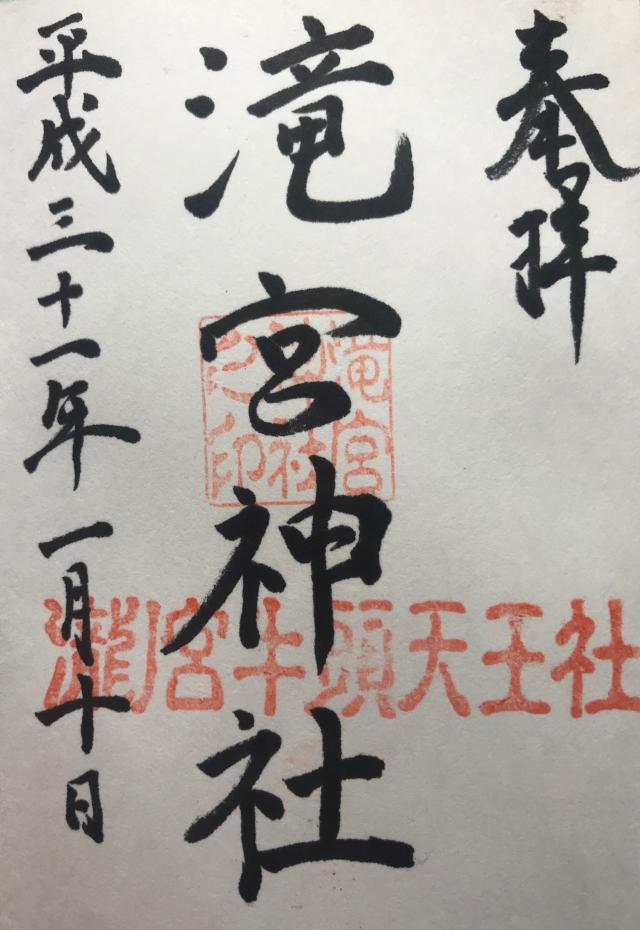 奉拝
滝宮神社
平成三十一年一月十日
滝宮
神社
之印
瀧宮牛頭天王社